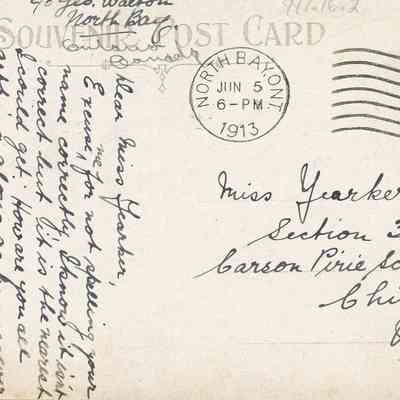 c/o Geo. Walton
North Bay
Ontario
Canada
91-16-2
SOUVENIR POST CARD
NORTH BAY, ONT
JUN 5
6-PM
1913
Miss Yearker
Section 3
Carson Pirie Sc
Chi
Dear Miss Yearker,
Excuse me for not spelling your
name correctly, I know it isn't
correct but it is the nearest
I could get. How are you all